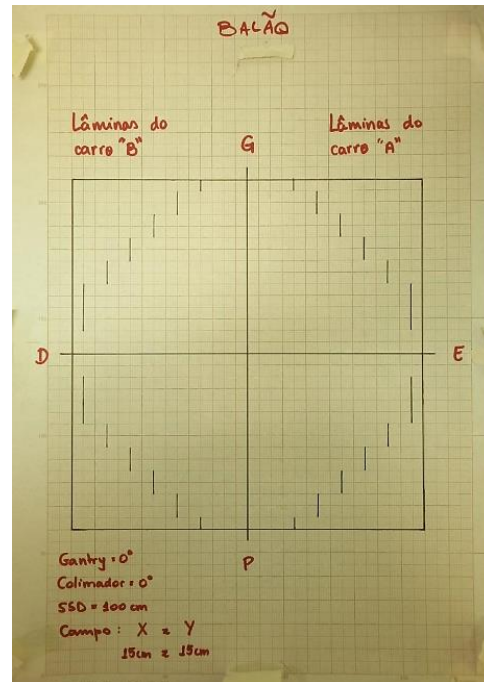 BALÃO
Lâminas do
carro "B"
Lâminas do
carro "A"
G
D
E
P
Gantry = 0°
Colimador = 0°
SSD = 100 cm
Campo : X = Y
15cm x 15cm